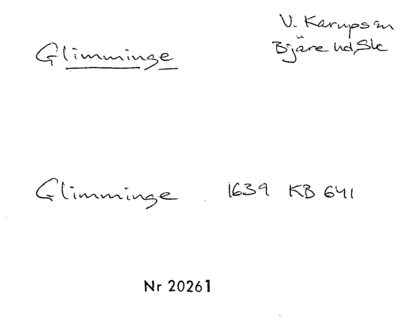 Glimminge
V. Karups sn
Bjäre hd, Sk
Glimminge 1639 KB 641
Nr 20261